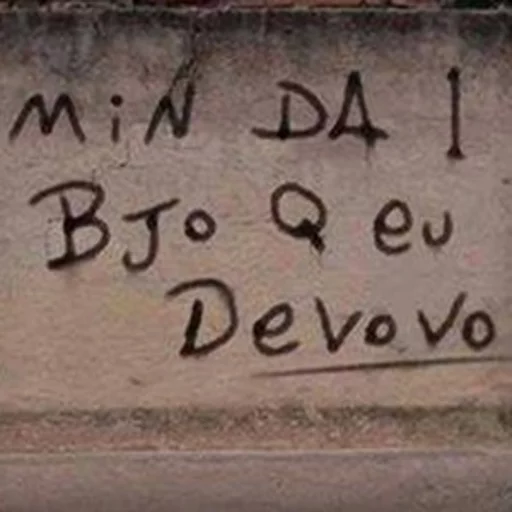 MiN DA 1
BJo Q eu
Devovo